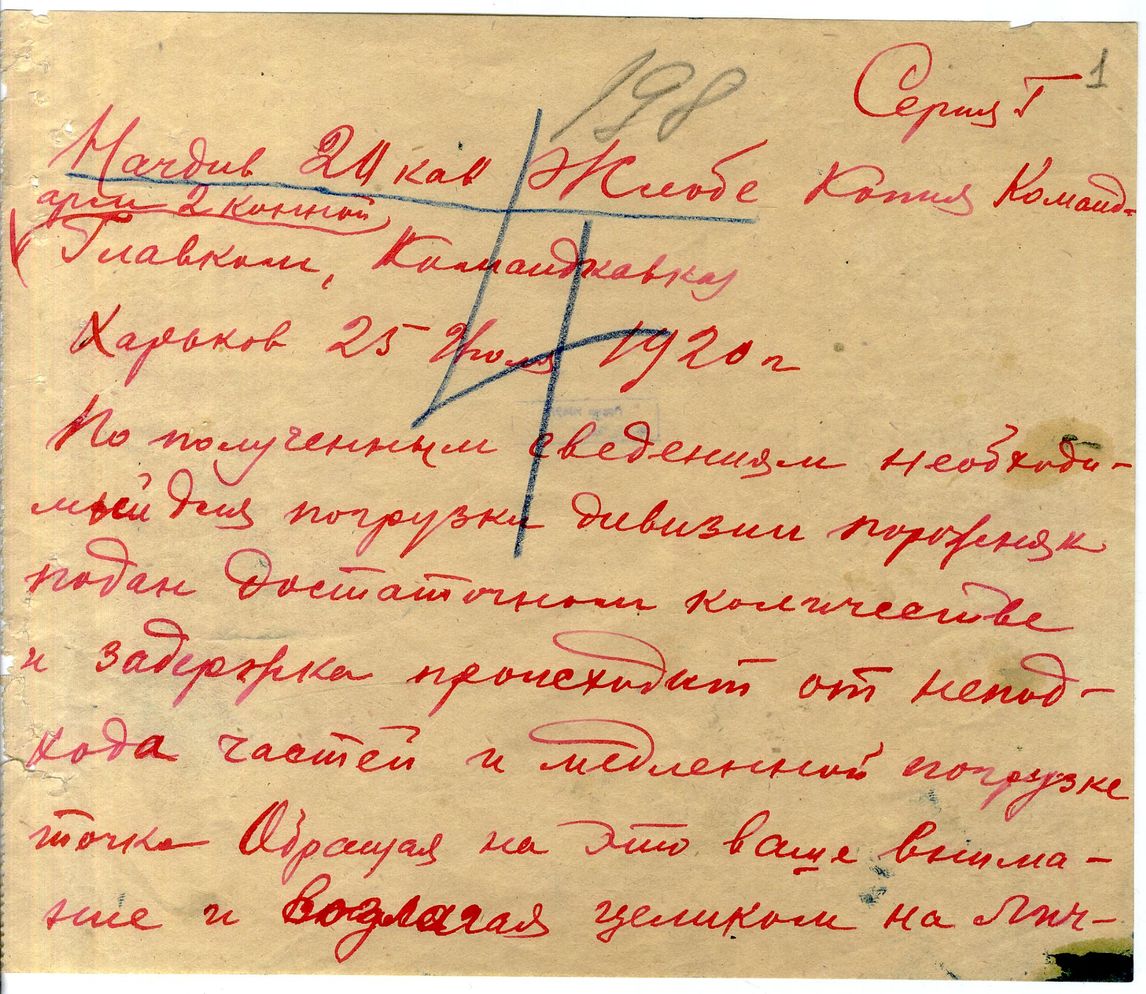 198
Серия Г 1
Начдив 2й кав Жлобе Копия Команд-
арм 2 конной
Главком, Командкавказ
Харьков 25 Июля 1920 г
По полученным сведениям необходи-
мый для погрузки дивизии порожняк
подан достаточном количестве
и задержка происходит от непод-
хода частей и медленной погрузке
точка Обращая на это ваше внима-
ние и возлагая целиком на лич-